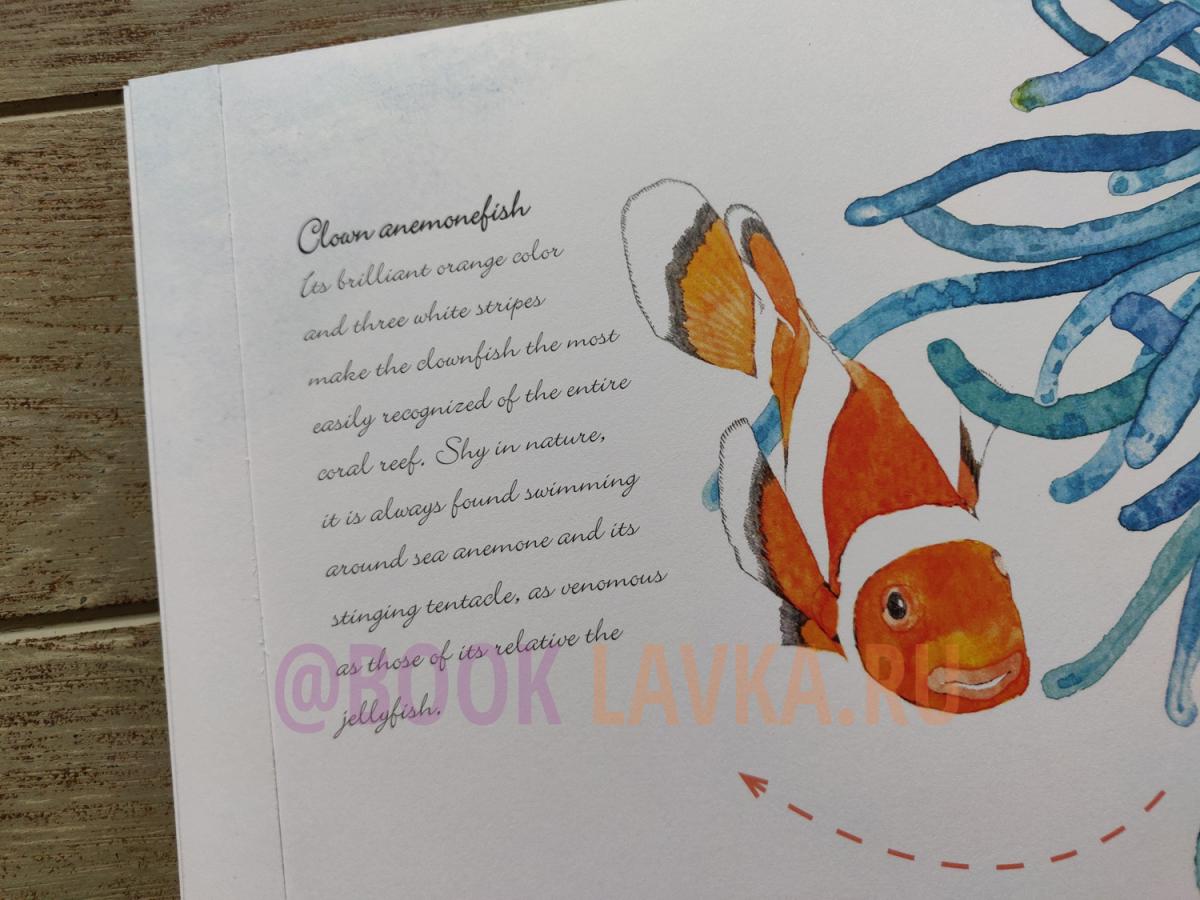 Clown anemonefish
Its brilliant orange color
and three white stripes
make the clownfish the most
easily recognized of the entire
coral reef. Shy in nature,
it is always found swimming
around sea anemone and its
stinging tentacle, as venomous
as those of its relative the
jellyfish.
@BOOK LAVKA.RU